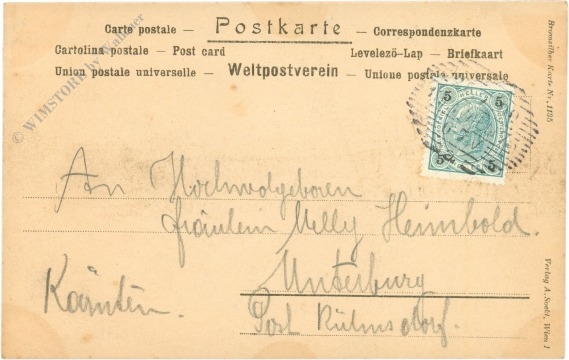 Carte postale — Postkarte — Correspondenzkarte
Cartolina postale — Post card Levelező-Lap — Briefkaart
Union postale universelle — Weltpostverein — Unione postale universale
© WIMSTORE by Wallner
Bromsilber Karte Nr. 1135
5 5
5 5
An Hochwolgeboren
Fräulein Melly Heimbold.
Unterburg
Kärnten.
Post Kühnsdorf.
Verlag A. Sockl, Wien I